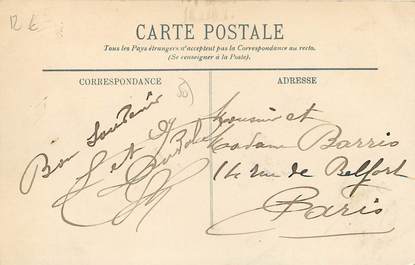 12 €
CARTE POSTALE
Tous les Pays étrangers n'acceptent pas la Correspondance au recto.
(Se renseigner à la Poste).
CORRESPONDANCE
Bon Souvenir
et
ADRESSE
Monsieur et
Madame Barris
14 rue de Belfort
Paris